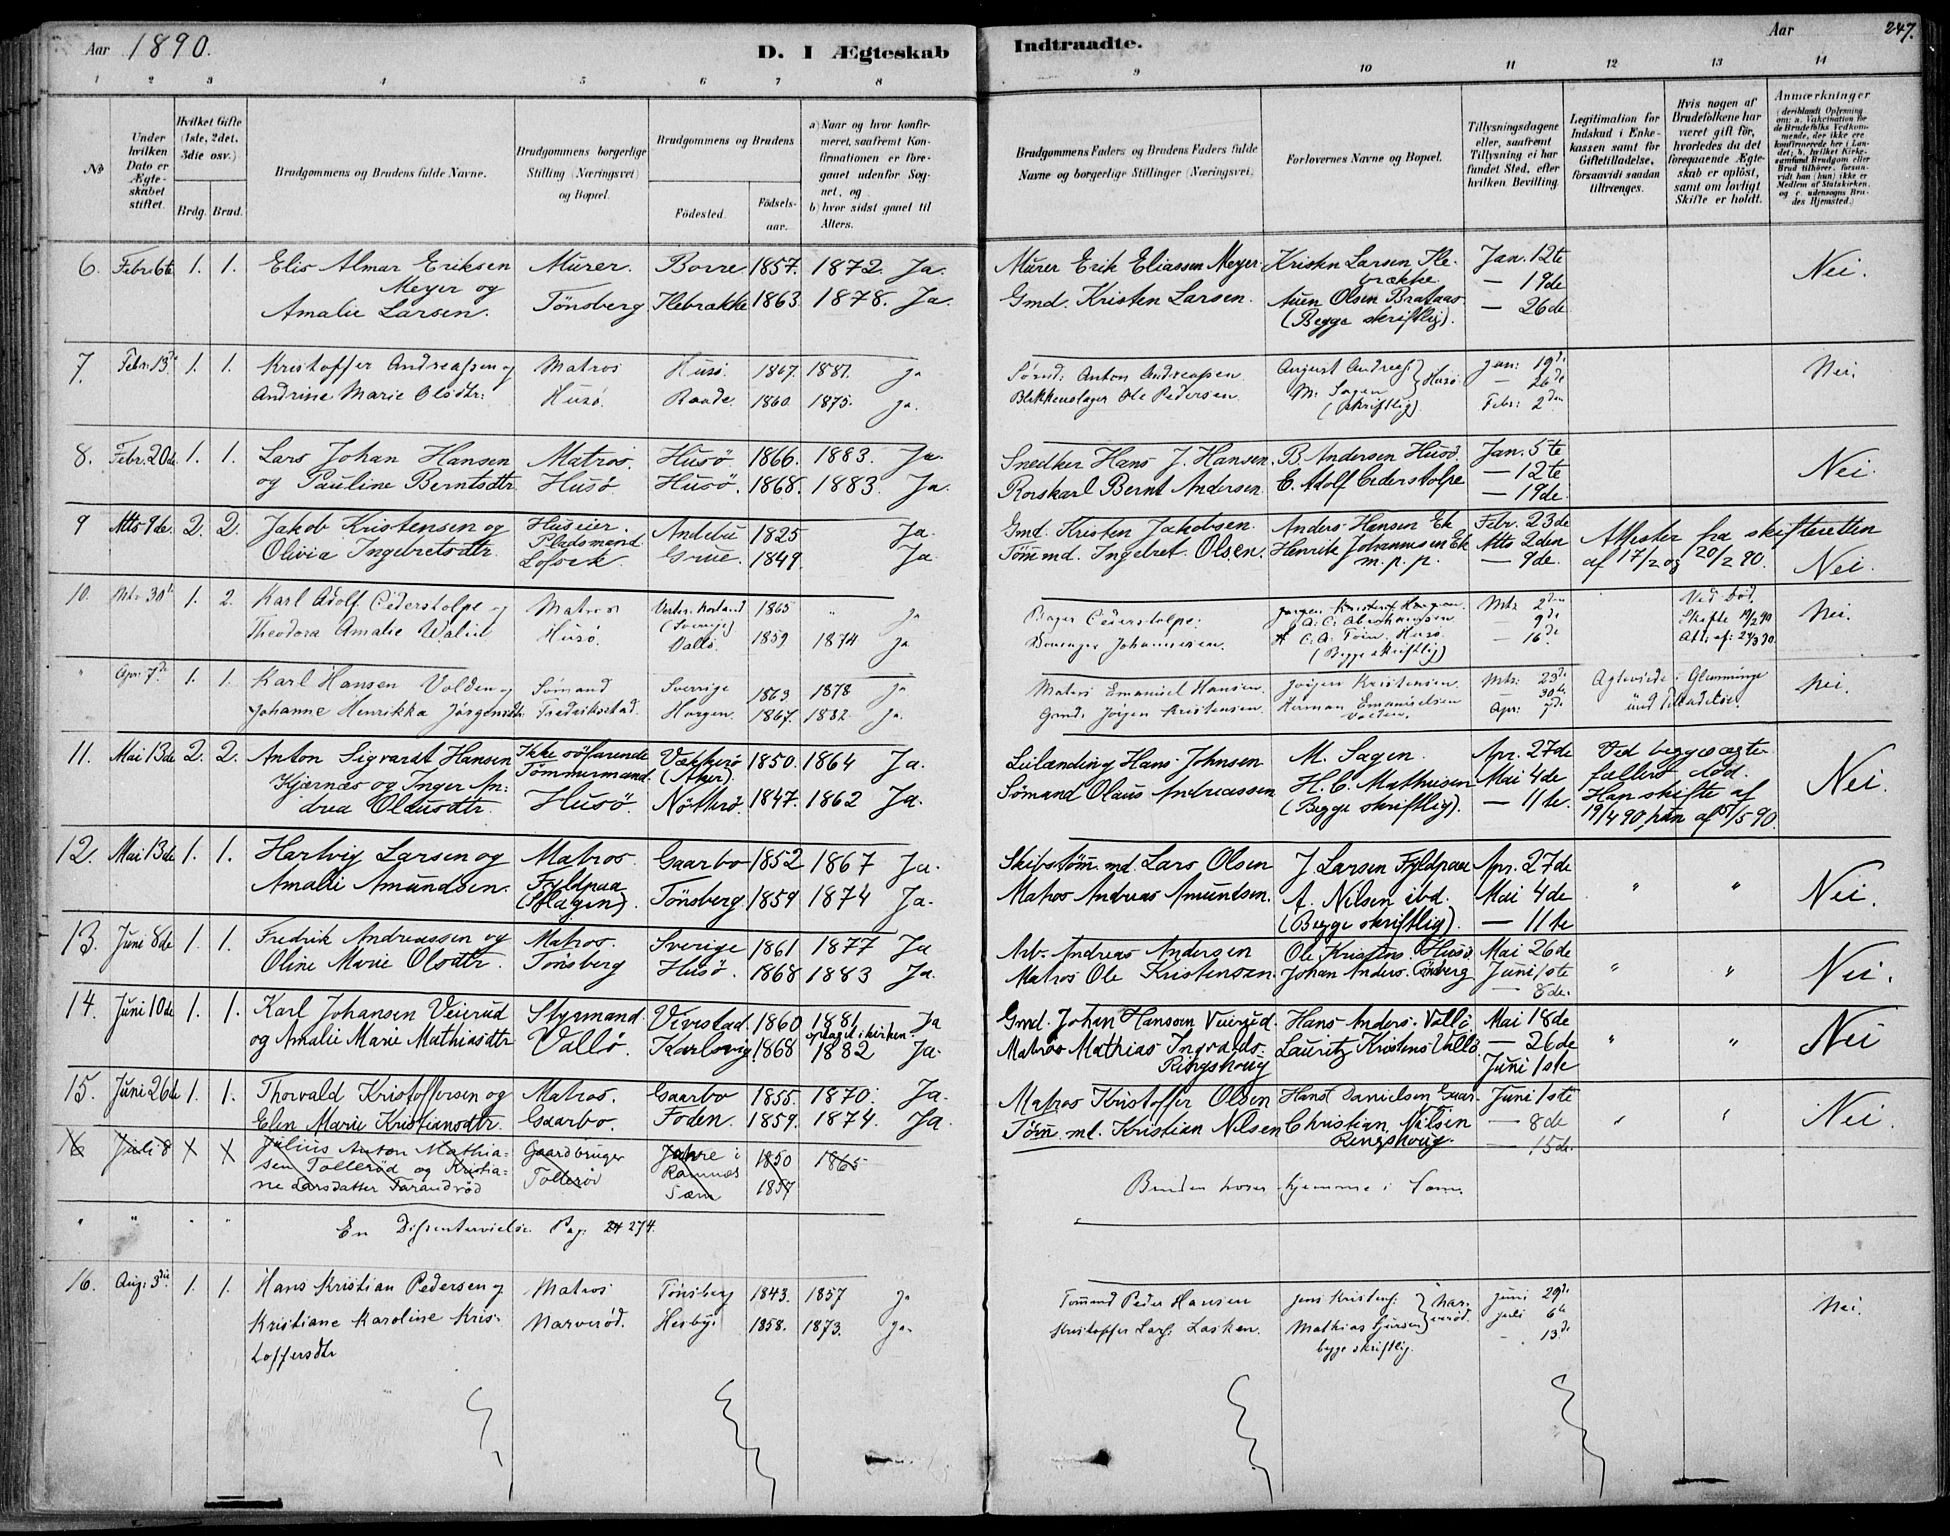 Aar 1890.
D. I Ægteskab Indtraadte.
Aar 247.
1 2 3 4 5 6 7 8 9 10 11 12 13 14
No
Under hvilken Dato er Ægteskabet stiftet.
Hvilket Gifte (1ste, 2det, 3die osv.)
Brdg. Brud.
Brudgommens og Brudens fulde Navne.
Brudgommens borgerlige Stilling (Næringsvei) og Bopæl.
Brudgommens og Brudens
Fødested.
Fødselsaar.
a) Naar og hvor konfirmeret, saafremt Konfirmationen er foregaaet udenfor Sognet, og
b) hvor sidst gaaet til Alters.
Brudgommens Faders og Brudens Faders fulde Navne og borgerlige Stillinger (Næringsvei).
Forlovernes Navne og Bopæl.
Tillysningsdagene eller, saafremt Tillysning ei har fundet Sted, efter hvilken Bevilling.
Legitimation for Indskud i Enkekassen samt for Giftetilladelse, forsaavidt saadan tiltrænges.
Hvis nogen af Brudefolkene har været gift før, hvorledes da det foregaaende Ægteskab er opløst, samt om lovligt Skifte er holdt.
Anmærkninger (deriblandt Oplysning om: a. Vaksination for de Brudefolks Vedkommende, der ikke ere konfirmerede her i Landet; b. hvilket Kirkesamfund Brudgom eller Brud tilhører, forsaavidt han (hun) ikke er Medlem af Statskirken, og c. udensogns Brudes Hjemsted.)
6. Febr. 6te 1. 1. Elis Almar Eriksen Murer. Borre 1857. 1872. Ja. Murer Erik Eliassen Meyer Kristen Larsen Ile- Jan. 12te Nei.
Meyer og brække — 19de
Amalie Larsen. Tönsberg Ilebrække 1863. 1878. Ja. Gmd. Kristen Larsen. Auen Olsen Brataas — 26de
(Begge skriftlig).
7. Febr. 13de 1. 1. Kristoffer Andreassen og Matros Husö. 1867. 1881. ja Sømd: Anton Andreassen August Andreass: Husö Jan: 19de Nei.
Andrine Marie Olsdtr: Husö. Raade. 1860. 1875. ja. Blikkenslager Ole Pedersen. M. Sagen — 26de
(skriftlig) Febr: 2den
8. Febr. 20de 1. 1. Lars Johan Hansen Matros. Husö 1866. 1883. Ja. Snedker Hans J. Hansen. B. Andersen Husö. Jan. 5te Nei.
og Pauline Berntsdtr. Husö Husö. 1868. 1883. Ja. Rorskarl Bernt Andersen. C. Adolf Cederstolpe — 12te
— 19de.
9 Mts 9de. 2. 2. Jakob Kristensen og Huseier. Andebu 1825 Ja. Gmd. Kristen Jakobsen. Anders Hansen Ek Febr. 23de Attester fra skifteretten
Pladsmand
Olivia Ingebretsdtr. Grue. 1849. Ja Tömmd. Ingebret Olsen. Henrik Johannesen Ek Mts 2den af 17/2 og 20/2 90. Nei.
m. p. p. — 9de.
10. Mts 30te 1. 2. Karl Adolf Cederstolpe og Matros (Sverige) 1865 " ja Cederstolpe. Mts 2den Ved Död. Nei.
Theodora Amalie Husö. Vallö. 1859 1874 ja Johannesen. Husö. — 9de Skifte 19/2 90
(Begge skriftlig) — 16de Att. af: 24/3 90.
" Apr. 7de 1. 1. Karl Hansen Volden og Sömand Sverrige 1863 1878 ja Matros Emanuel Hansen. Jörgen Kristensen. Mts: 23de Nei.
Johanne Henrikka Jörgensdtr: Fredrikstad. Horgen. 1867. 1882. ja. Gmd: Jörgen Kristensen. Herman Emanuelsen — 30te
Volden. Apr: 7de
11. Mai 13de 2. 2. Anton Sigvardt Hansen Ikke söfarende Vækkerö 1850. 1864 Ja. Leilænding Hans Johnsen M. Sagen. Apr. 27de Ved begges ægte- Nei.
Kjærnæs og Inger An- Tömmermand. (Aker). H. C. Mathisen Mai 4de fællers död.
drea Olausdtr. Husö Nötterö. 1847. 1862 Ja. Sömand Olaus Andreassen (Begge skriftlig). — 11te. Hans skifte af
19/4 90, hun af 5/5 90.
12. Mai 13de 1. 1. Hartvig Larsen og Matros. Gaarbo 1852 1867 Ja. Skibstöm. md. Lars Olsen J. Larsen Fyldpaa Apr. 27de " " Nei.
Amalie Amundsen. Fyldpaa (Slagen). Tönsberg 1859 1874 Ja. Matros Andreas Amundsen. A. Nilsen ibd. Mai 4de
(Begge skriftlig). — 11te
13. Juni 8de 1. 1. Fredrik Andreassen og Matros. Sverige 1861 1877 Ja Arb. Andreas Andersen Ole Kristens. Husö. Mai 26de " " Nei.
Oline Marie Olsdtr. Tönsberg Husö. 1868 1883 Ja. Matros Ole Kristensen. Johan Anders. Tönsberg Juni 1ste
— 8de.
14. Juni 10de 1. 1. Karl Johansen Veierud Styrmand. Vivestad 1860 1881 Ja Gmd. Johan Hanssen Veierud. Hans Anders. Vallö. Mai 18de " " Nei
optaget i kirken.
og Amalie Marie Mathiasdtr Vallö. Karlsvig. 1868 1882 Ja. Matros Mathias Ingvalds. Lauritz Kristens. Vallö. — 26de
Ringshoug Juni 1ste
15. Juni 26de 1. 1. Thorvald Kristoffersen og Matros. Gaarbo 1855. 1870. Ja. Matros Kristoffer Olsen Hans Danielsen Gaar- Juni 1ste " " Nei.
Elen Marie Kristiansdtr. Gaarbo. Foden. 1859. 1874. Ja. Töm. ml. Kristian Nilsen Christian Nilsen — 8de
Ringshoug. — 15de.
16 Juli 8 Julius Anton Mathia- Gaardbruger i 1850 1865
sen Tollerød og Kristia- Tollerød Ramnæs Bruden hjemme i Sem.
ne Larsdatter Tarandrød Sæm 1857
" " " " En Dissentervielse Pag: 274.
16. Aug: 3die 1. 1. Hans Kristian Pedersen og Matros Tönsberg 1843. 1857 ja Tömmd Peder Hansen Jens Kristens: Nar- Juni 29de Nei.
Kristiane Karoline Kris- Narverød. Hesby. 1858. 1873. ja. Kristoffer Lars: Lasken. Mathias verød. Juli 6te
toffersdtr begge skriftlig. — 13de